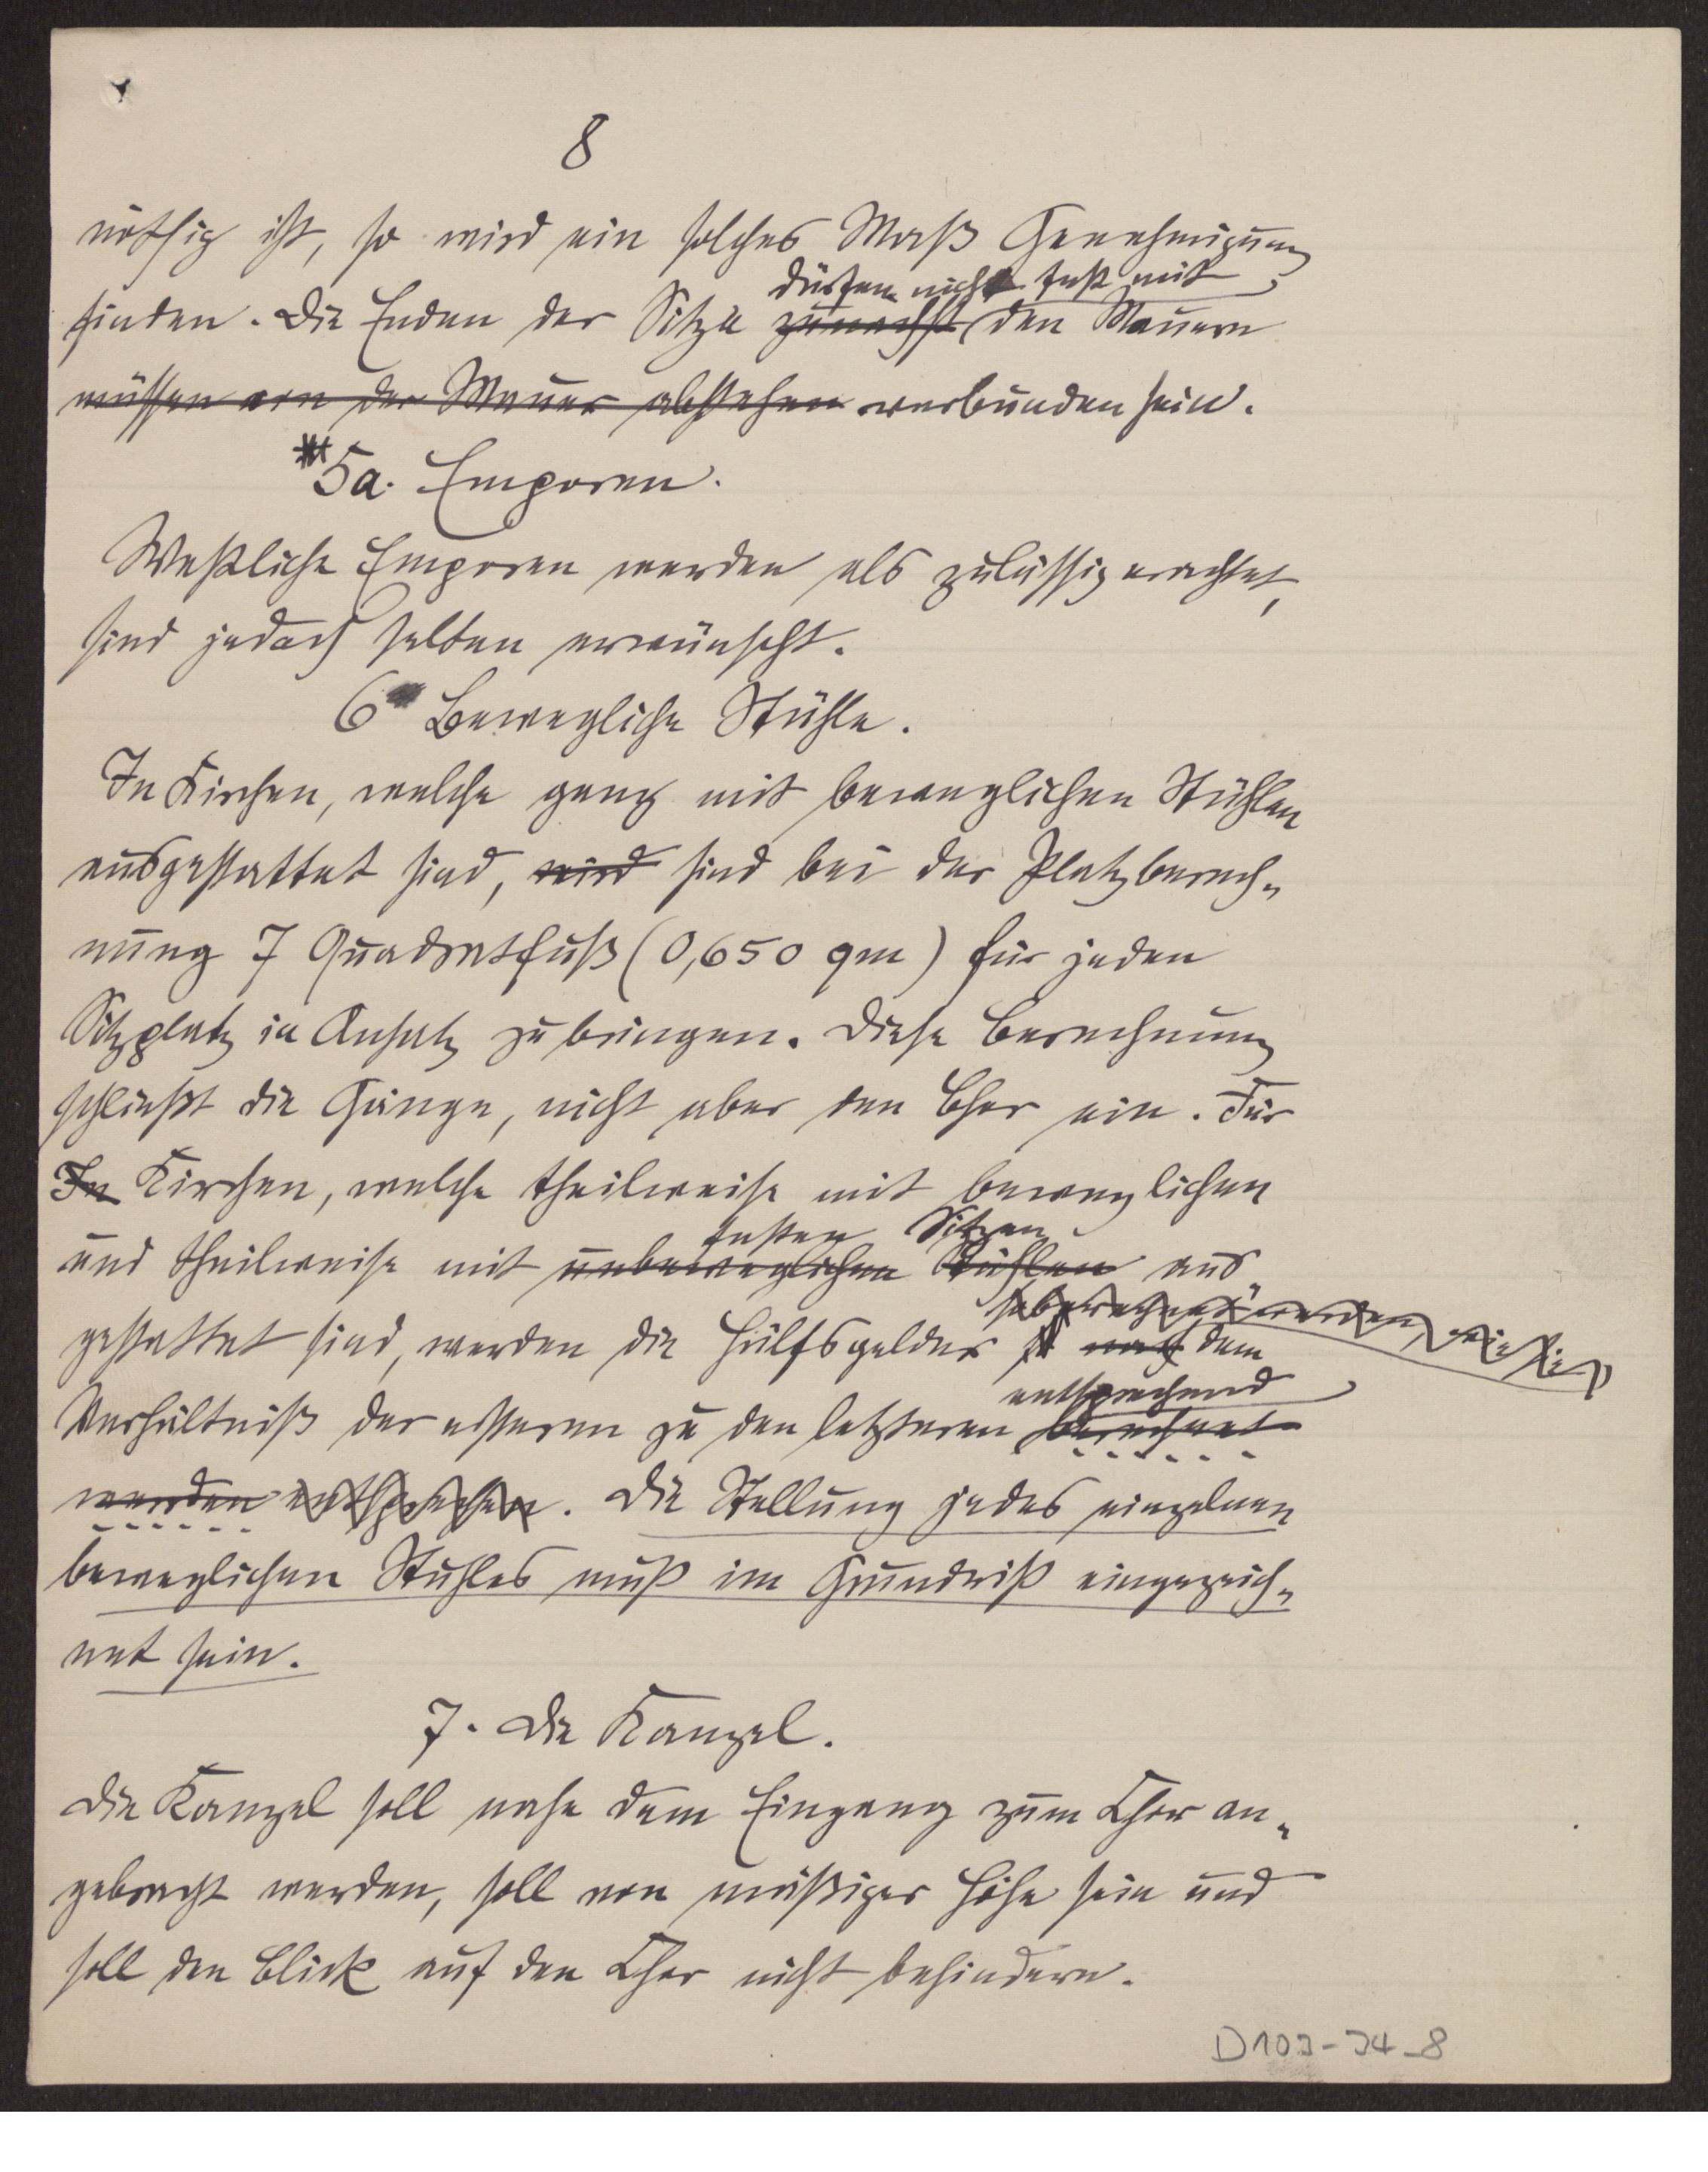 8
nöthig ist, so wird ein solches Maß Genehmigung
dürfen nicht fest mit
finden. Die Enden der Sitze zunächst den Mauern
müssen von der Mauer abstehen verbunden sein.
5a. Emporen.
Westliche Emporen werden als zulässig erachtet,
sind jedoch selten erwünscht.
6 Bewegliche Stühle.
In Kirchen, welche ganz mit beweglichen Stühlen
ausgestattet sind, wird sind bei der Platzberech-
nung 7 Quadratfuß (0,650 qm) für jeden
Sitzplatz in Ansatz zu bringen. Diese Berechnung
schließt die Gänge, nicht aber den Chor ein. Für
In Kirchen, welche theilweise mit beweglichen
festen Sitzen
und theilweise mit unbeweglichen Stühlen aus-
so berechnet werden, wie sie
gestattet sind, werden die Hülfsgelder nach dem
entsprechend
Verhältniß der ersteren zu den letzteren berechnet
werden entsprechen. Die Stellung jedes einzelnen
beweglichen Stuhles muß im Grundriß eingezeich-
net sein.
7. Die Kanzel.
Die Kanzel soll nahe dem Eingang zum Chor an-
gebracht werden, soll von mäßiger Höhe sein und
soll den Blick auf den Chor nicht behindern.
D103-34_8